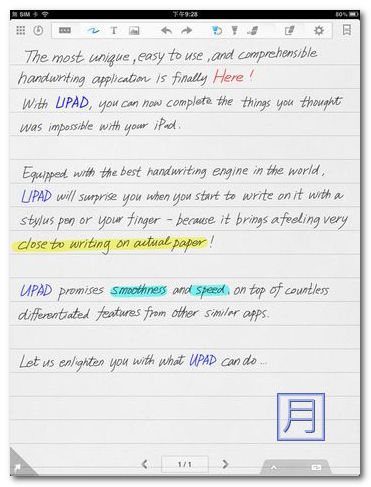 無 SIM 卡 下午9:28 80%
The most unique, easy to use, and comprehensible
handwriting application is finally Here!
With UPAD, you can now complete the things you thought
was impossible with your iPad.
Equipped with the best handwriting engine in the world,
UPAD will surprise you when you start to write on it with a
stylus pen or your finger - because it brings a feeling very
close to writing on actual paper!
UPAD promises smoothness and speed, on top of countless
differentiated features from other similar apps.
Let us enlighten you with what UPAD can do...
月
1/1